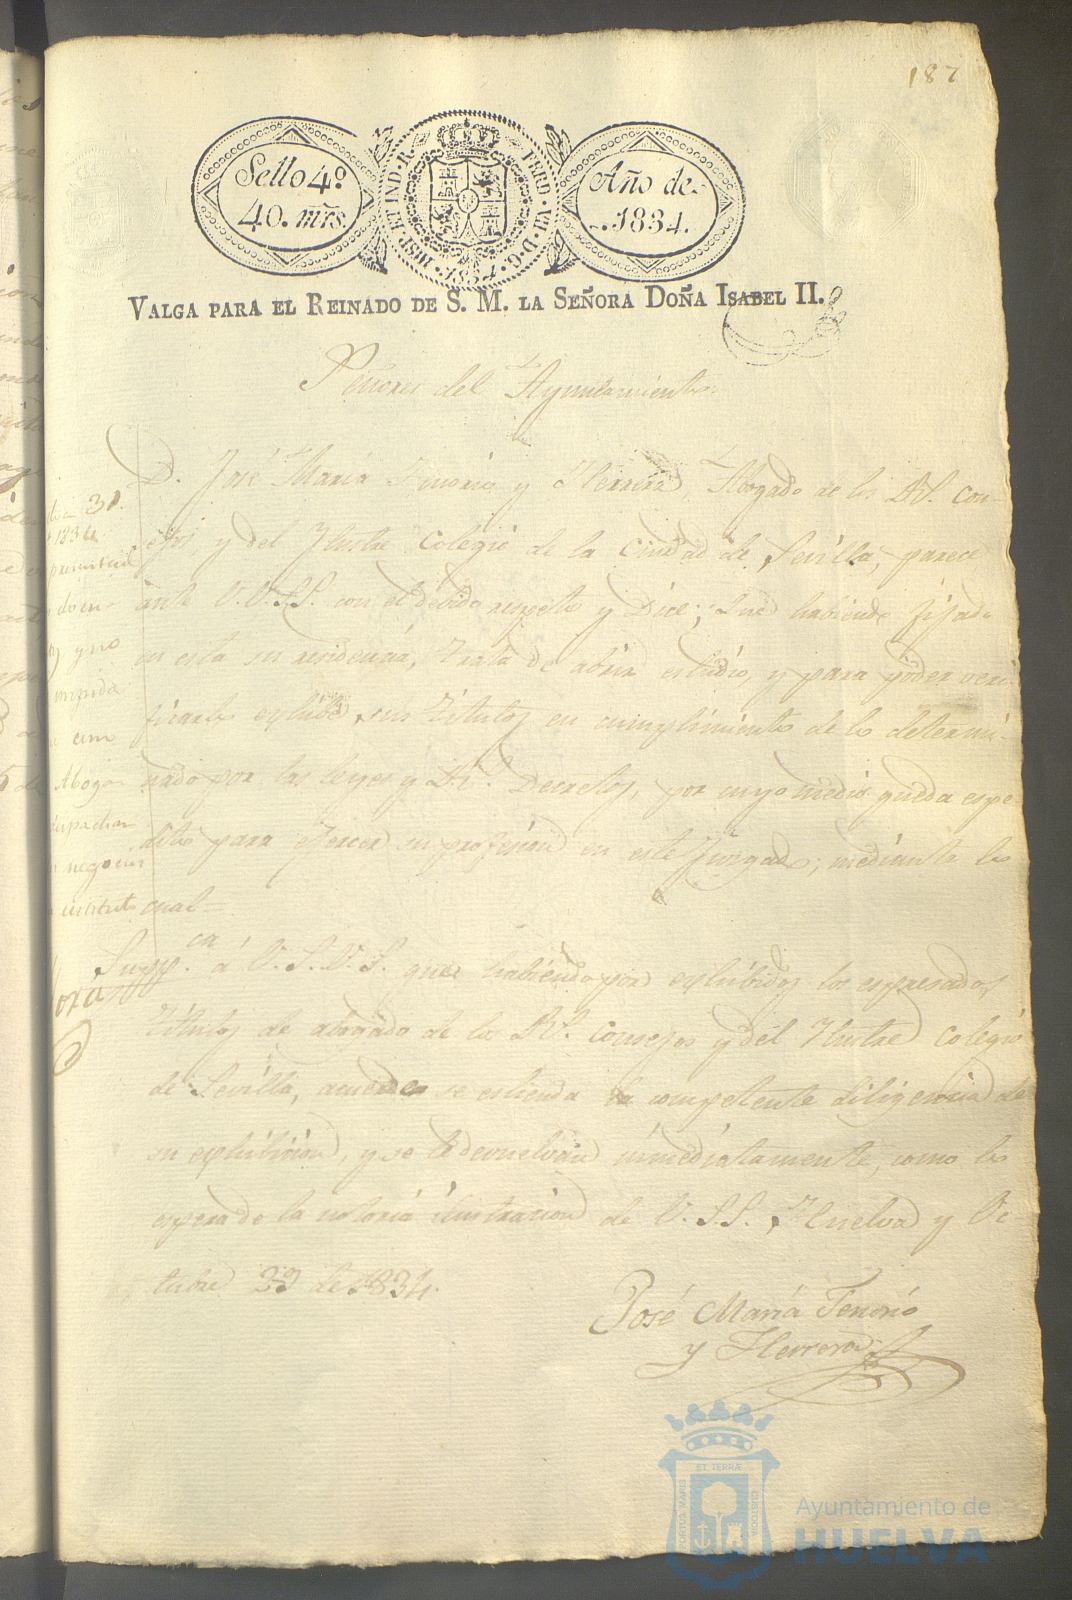 187
Sello 4º
40. mrs.
HISP. ET IND. R. FERD. VII. D. G. 1834.
Año de
1834.
VALGA PARA EL REINADO DE S. M. LA SEÑORA DOÑA ISABEL II.
Señores del Ayuntamiento
D. José María Tenorio y Herrera, Abogado de los Rs. con-
sejos y del Ilustre Colegio de la Ciudad de Sevilla, parece
ante V.V.S.S. con el debido respeto y Dice; Que habiendo fijado
en esta su residencia, trata de abrir estudio, y para poder veri-
ficarlo exhibe sus títulos en cumplimiento de lo determi-
nado por las leyes y Rs. Decretos, por cuyo medio queda espe-
dito para ejercer su profesion en este Juzgado; mediante lo
cual
Supp.ca á V.S.V.S. que habiendo por exhibidos los espresados
títulos de abogado de los Rs. Consejos y del Ilustre Colegio
de Sevilla, acuerden se estienda la competente diligencia de
su exhibicion, y se le devuelvan inmediatamente, como lo
espera de la notoria ilustracion de V.S.S. Huelva y Oc-
tubre 29 de 1834.
José María Tenorio
y Herrera
31
1834
y no
Aboga
despachar
negocios
instituto
ora
PORTUS MARIS ET TERRÆ CUSTODIA
Ayuntamiento de
HUELVA